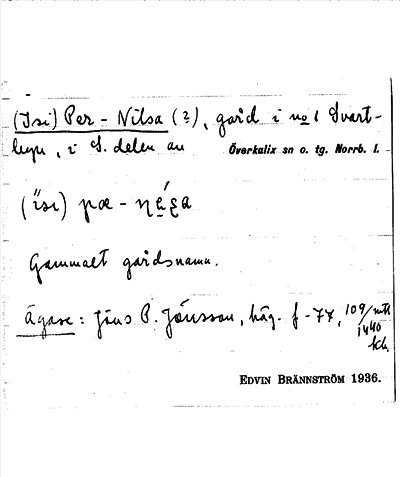 (Isi) Per-Nilsa (?), gård i no 1 Svart-
byn, i S. delen av Överkalix sn o. tg. Norrb. l.
Gammalt gårdsnamn.
Ägare: Jöns P. Jönsson, häg. f. -77, 109/
EDVIN BRÄNNSTRÖM 1936.